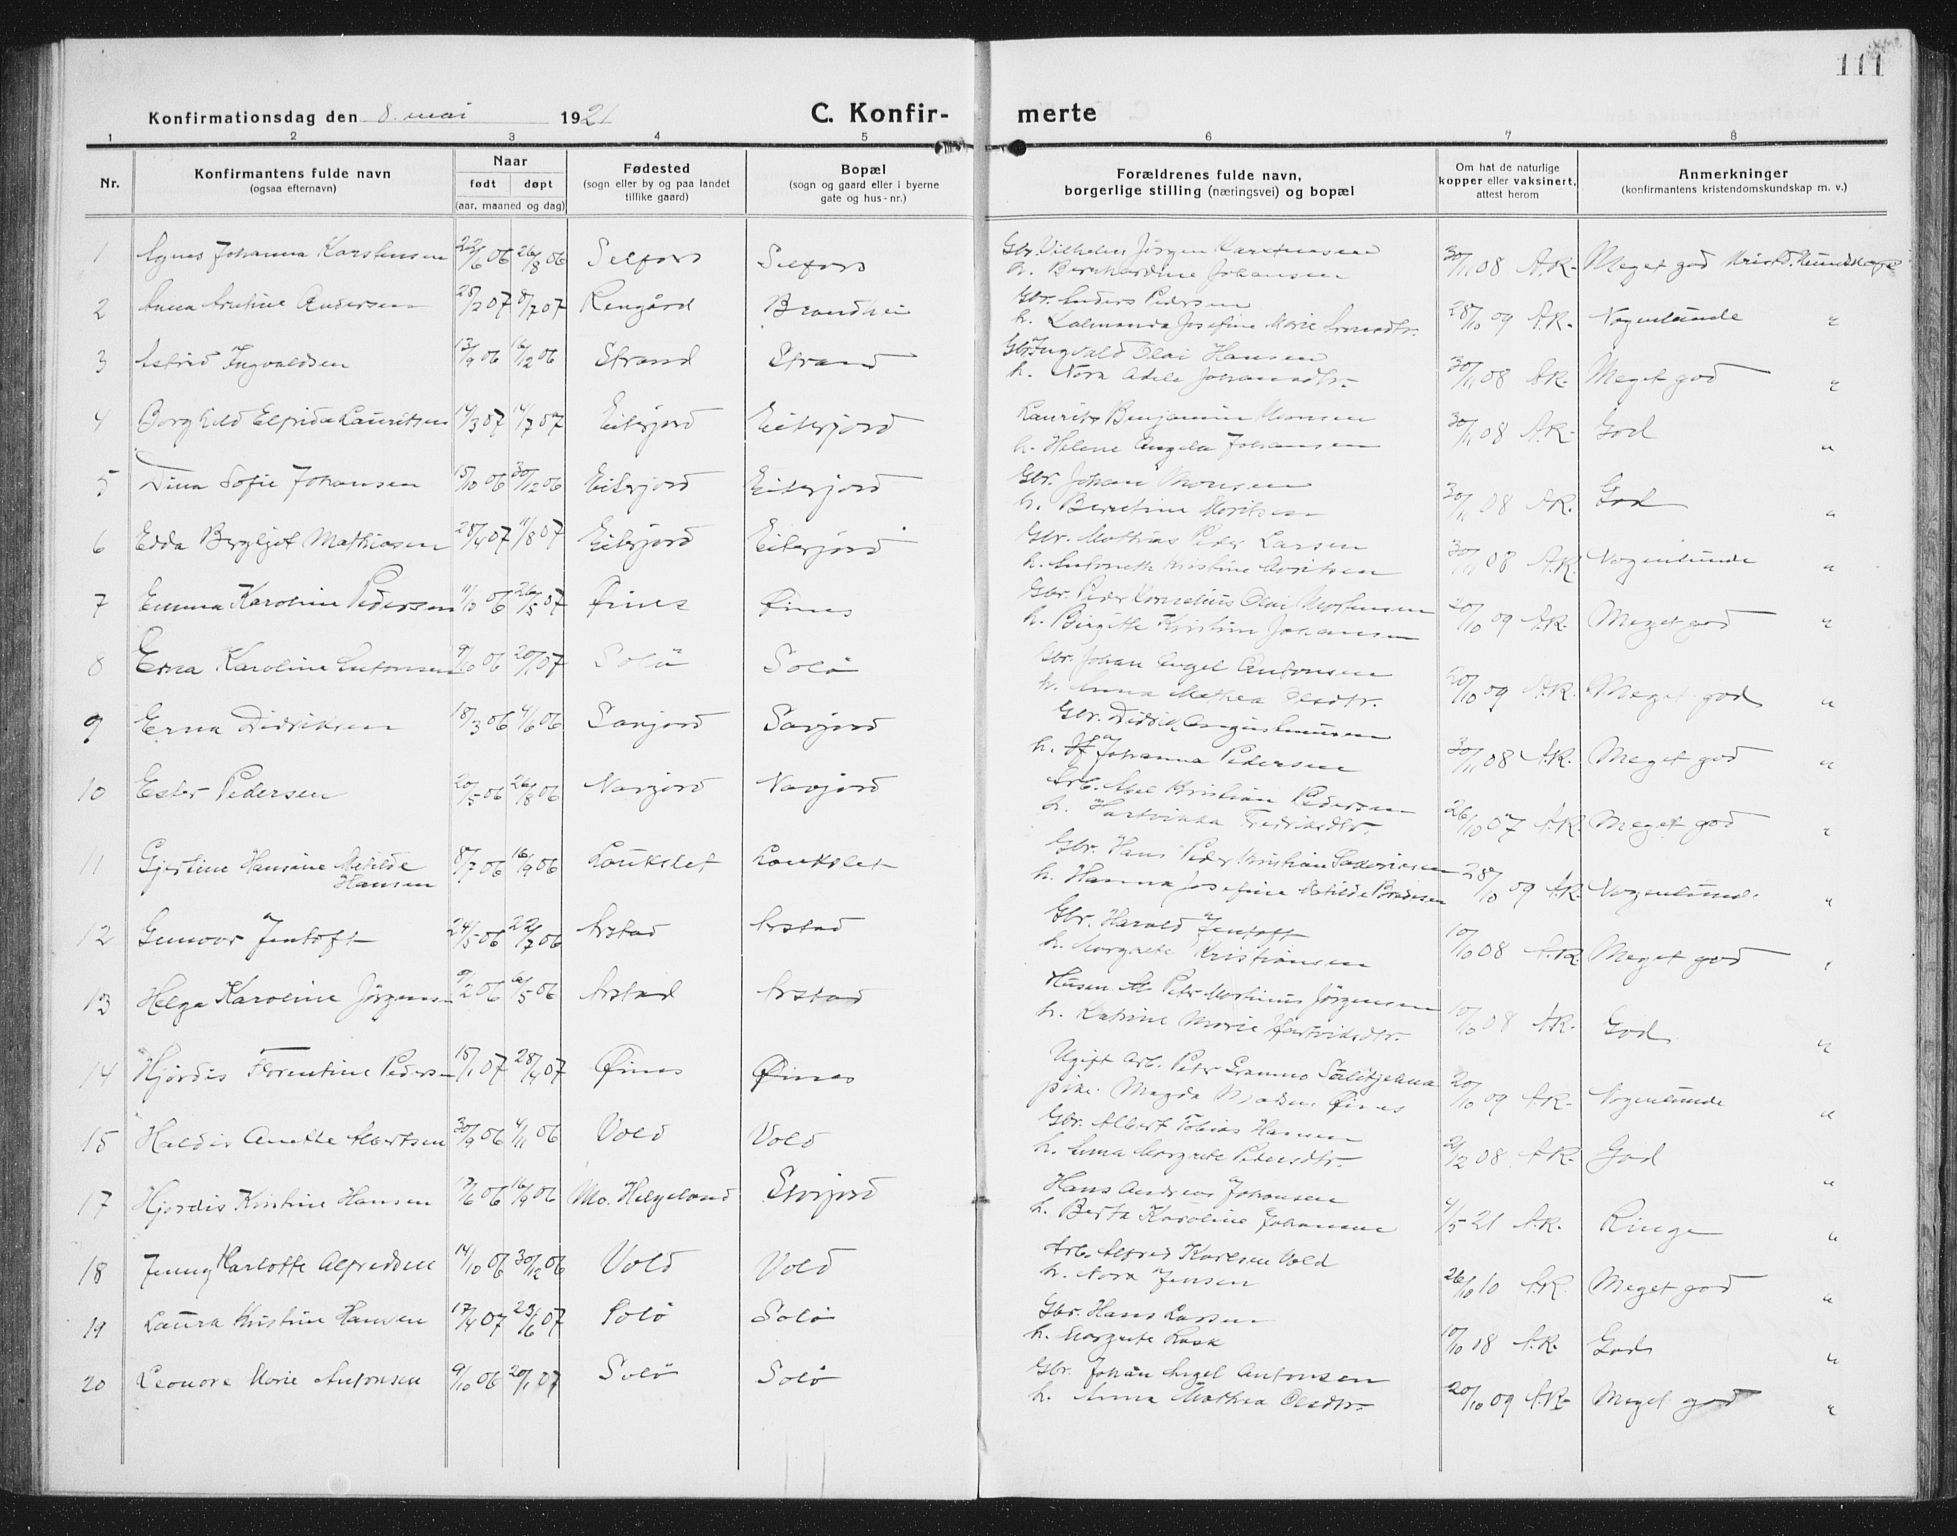 111
Konfirmationsdag den 8. mai 1921
C. Konfir-
merte
1 2 3 4 5 6 7 8
Nr.
Konfirmantens fulde navn
(ogsaa efternavn)
Naar
født døpt
(aar, maaned og dag)
Fødested
(sogn eller by og paa landet
tillike gaard)
Bopæl
(sogn og gaard eller i byerne
gate og hus-nr.)
Forældrenes fulde navn,
borgerlige stilling (næringsvei) og bopæl
Om hat de naturlige
kopper eller vaksinert,
attest herom
Anmerkninger
(konfirmantens kristendomskundskap m. v.)
1 Agnes Johanna Karstensen 22/6 06 26/8 06 Selfors Selfors
Gbr. Vilhelm Jörgen Karstensen
h. Bernhardine Johansen
30/11 08 A.R. Meget god Kristd. kundskap
2 Anna Arntine Andersen 25/2 07 8/7 07 Rengård Brandhei
Gbr. Anders Pedersen
h. Lalmanda Josefine Marie
28/10 09 A.R. Nogenlunde "
3 Astrid Ingvaldsen 13/9 06 16/12 06 Strand Strand
Gbr. Ingvald Olai Hansen
h. Nora Adele Johansdtr.
30/11 08 A.R. Meget god "
4 Borghild Elfrida Lauritsen 14/3 07 14/7 07 Eiterjord Eiterjord
Laurits Benjamin Monsen
h. Helene Angela Johansen
30/11 08 A.R. God "
5 Dina Sofie Johansen 15/10 06 30/12 06 Eiterjord Eiterjord
Gbr. Johan Monsen
h. Berntine Moritsen
30/11 08 A.R. God "
6 Edda Bergljot Mathiasen 28/4 07 11/8 07 Eiterjord Eiterjord
Gbr. Mathias Peder Larsen
h. Antoneth Kristine
30/11 08 A.R. Nogenlunde "
7 Emma Karoline Pedersen 11/10 06 26/5 07 Øines Øines
Gbr. Peder Kornelius Olai Mortensen
h. Birgitte Kristine Johansen
20/10 09 A.R. Meget god "
8 Erna Karoline Antonsen 9/10 06 20/1 07 Solö Solö
Gbr. Johan Angel Antonsen
h. Anna Mathea Olsdtr.
20/10 09 A.R. Meget god "
9 Erna Didriksen 18/3 06 4/6 06 Savjord Savjord
Gbr. Didrik Angustinussen
h. Johanna Pedersen
30/11 08 A.R. Meget god "
10 Ester Pedersen 20/5 06 26/8 06 Navjord Navjord
Arb. Abel Kristian Pedersen
h. Hartvikka Fredriksdtr.
26/10 07 A.R. Meget god "
11 Gjertine Hansine Matilde
Hansen 8/7 06 16/9 06 Laukslet Laukslet
Gbr. Hans Peder Kristian
h. Hanna Josefine Matilde
28/10 09 A.R. Nogenlund. "
12 Gunvor Jentoft 24/5 06 22/7 06 Arstad Arstad
Gbr. Harald Jentoft
h. Margrete Kristiansen
10/10 08 A.R. Meget god "
13 Helga Karoline Jörgensen 9/2 06 6/5 06 Arstad Arstad
Husm. Petr Martinus Jörgensen
h. Katrine Marie Hartviksdtr.
10/10 08 A.R. God "
14 Hjördis Florentine Peders 18/1 07 28/4 07 Øines Øines
Ugift Arb. Petr Grammo Sulitjelma
pike. Magda Øines
20/10 09 A.R. Nogenlunde "
15 Haldis Anette Albertsen 30/9 06 4/11 06 Vold Vold
Gbr. Albert Tobias Hansen
h. Anna Margrete Pedersdtr.
2/12 08 A.R. God "
17 Hjørdis Kristine Hansen 17/6 06 16/9 06 Mo. Helgeland Storjord
Hans Andreas Johansen
h. Berta Karoline Johansen
4/5 21 A.R. Ringe "
18 Jenny Karlotte Alfredsen 14/10 06 30/12 06 Vold Vold
Arb. Alfred Karlsen Vold
h. Nora Jensen
26/10 10 A.R. Meget god "
19 Laura Kristine Hansen 17/4 07 23/6 07 Solø Solö
Gbr. Hans Larsen
h. Margrete Lask
10/10 08 A.R. God "
20 Leonora Marie Antonsen 9/10 06 20/1 07 Solø Solø
Gbr. Johan Angel Antonsen
h. Anna Mathea Olsdtr.
20/10 09 A.R. Meget god "